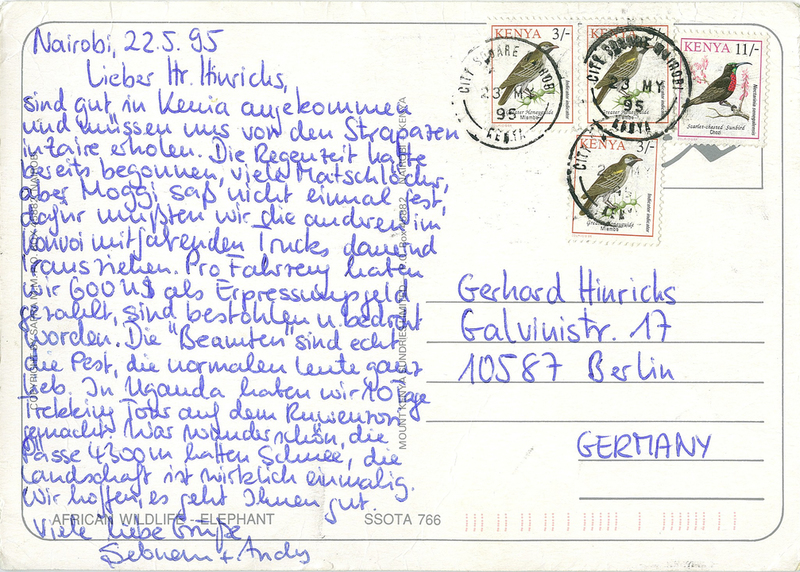 Nairobi, 22.5.95
Lieber Hr. Hinrichs,
sind gut in Kenia angekommen
und müssen uns von den Strapazen
in Zaire erholen. Die Regenzeit hatte
bereits begonnen, viele Matschlöcher,
aber Moggi saß nicht einmal fest,
dafür mußten wir die anderen im
Konvoi mitfahrenden Trucks dauernd
rausziehen. Pro Fahrzeug haben
wir 600 U$ als Erpressungsgeld
gezahlt, sind bestohlen u. bedroht
worden. Die "Beamten" sind echt
die Pest, die normalen Leute ganz
lieb. In Uganda haben wir 10 Tage
Trekking Tour auf dem Ruwenzori
gemacht. War wunderschön, die
Pässe 4300m hatten Schnee, die
Landschaft ist wirklich einmalig.
Wir hoffen, es geht Ihnen gut.
Viele liebe Grüße
Sebnem + Andy
AFRICAN WILDLIFE - ELEPHANT
SSOTA 766
MOUNT KENYA SUNDRIES LIMITED
NAIROBI KENYA
KENYA 3/-
Indicator indicator
Greater Honeyguide
Mlembe
CITY SQUARE NAIROBI
23 MY
95
KENYA
KENYA 3/-
Indicator indicator
CITY SQUARE NAIROBI
23 MY
95
KENYA
KENYA 11/-
Scarlet-chested Sunbird
Chozi
KENYA 3/-
Indicator indicator
Greater Honeyguide
Mlembe
Gerhard Hinrichs
Galvinistr. 17
10587 Berlin
GERMANY